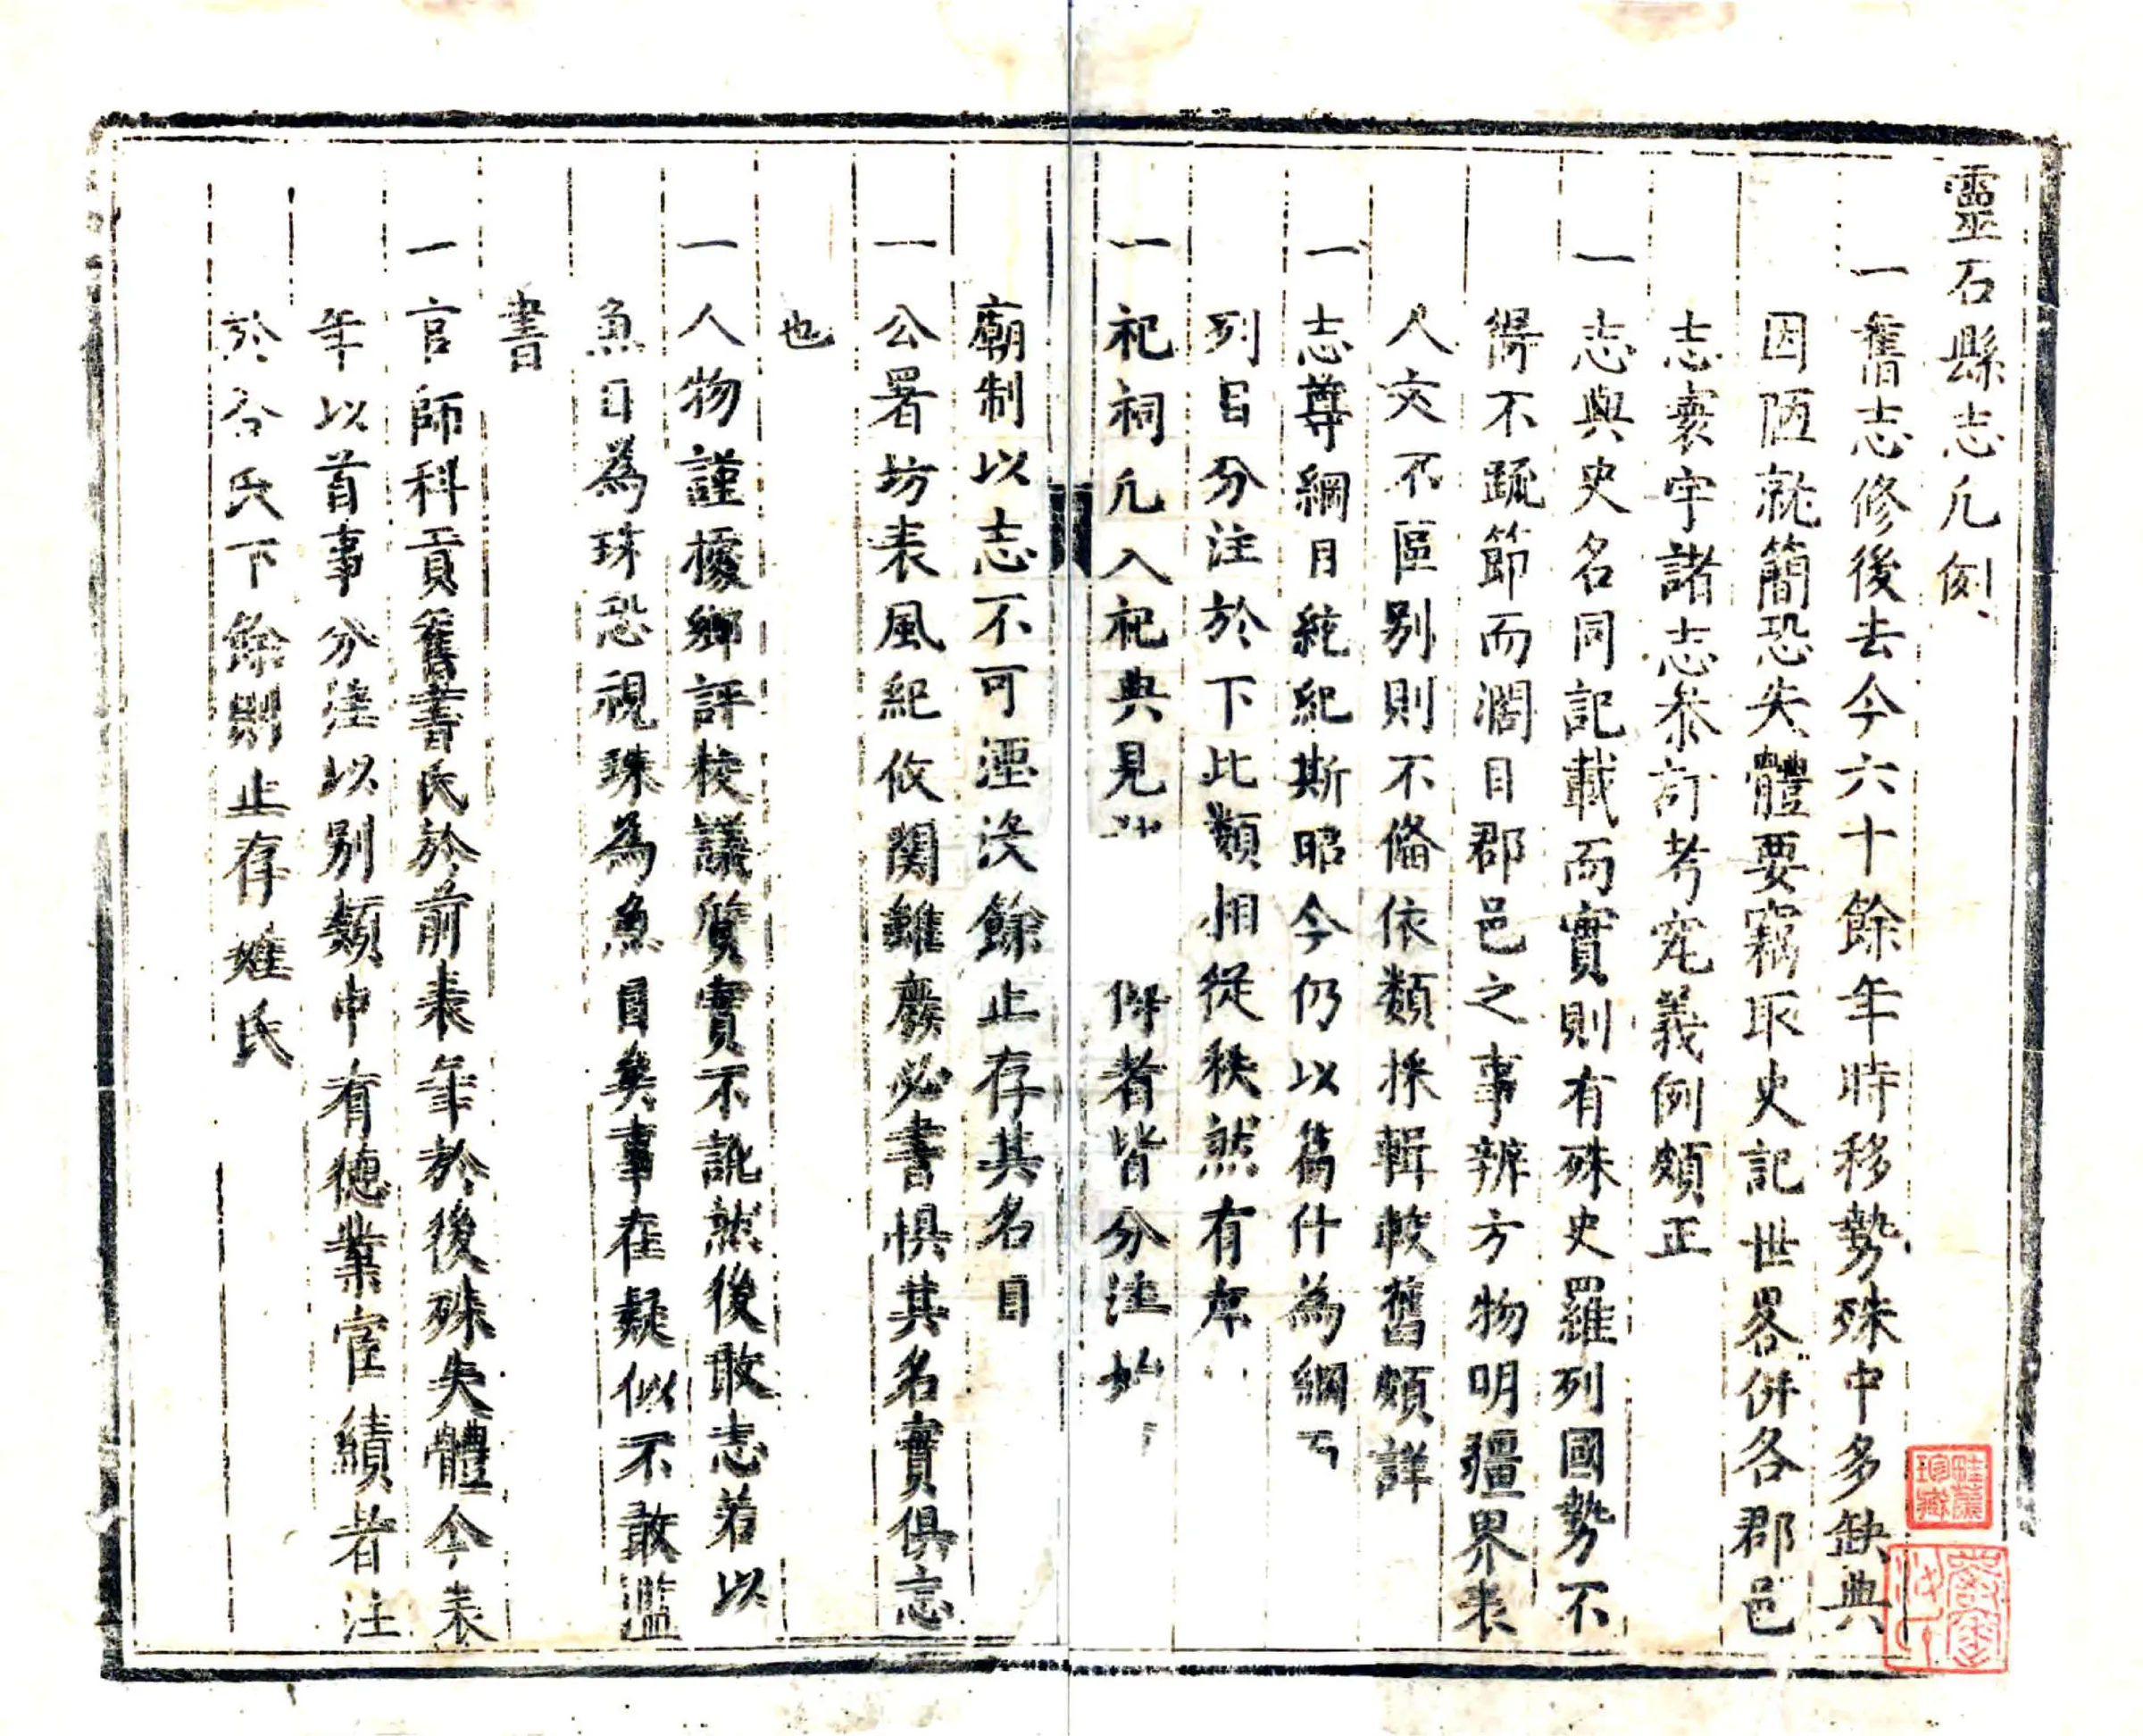 靈石縣志凡例
一舊志修後去今六十餘年時移勢殊中多缺典
因陋就簡恐失體要竊取史記世畧併各郡邑
志寰宇諸志叅訂考究義例頗正
一志與史名同記載而實則有殊史羅列國勢不
得不疏節而濶目郡邑之事辨方物明疆界表
人文不區别則不備依類採輯較舊頗詳
一志尊綱目統紀斯昭今仍以舊什為綱
列目分注於下比類相從秩然有序
一祀祠凡入祀典見 者皆分注
廟制以志不可湮沒餘止存其名目
一公署坊表風紀攸関雖廢必書惧其名實俱忘
也
一人物謹據鄉評校議質實不訛然後敢志若以
魚目為珠恐視珠為魚目矣事在疑似不敢濫
書
一官師科貢舊書氏於前表年於後殊失體今表
年以首事分注以别類中有德業宦績者注
於各氏下餘則止存姓氏
珍藏